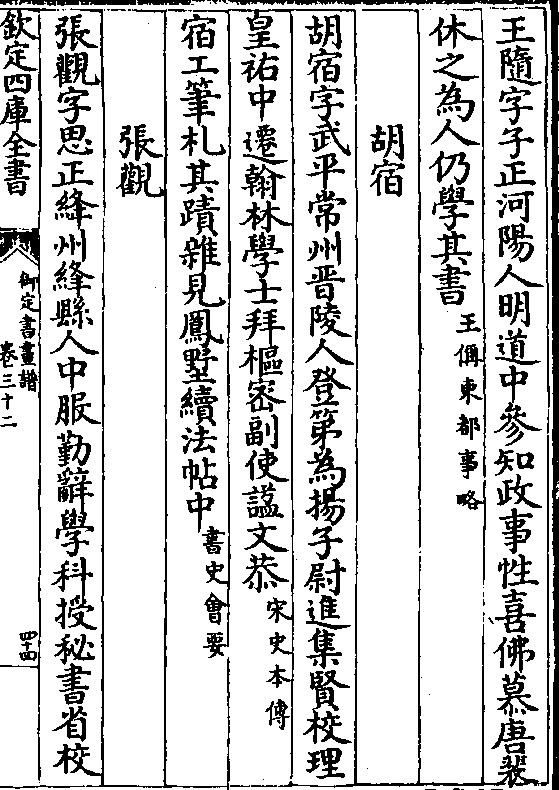 王隨字子正河陽人明道中參知政事性喜佛慕唐裴
休之為人仍學其書王偁東都事略
胡宿
胡宿字武平常州晉陵人登第為揚子尉進集賢校理
皇祐中遷翰林學士拜樞密副使謚文恭宋史本傳
宿工筆札其蹟雜見鳳墅續法帖中書史會要
張觀
張觀字思正絳州絳縣人中服勤辭學科授秘書省校
欽定四庫全書
御定書畫譜
卷三十二
四十四